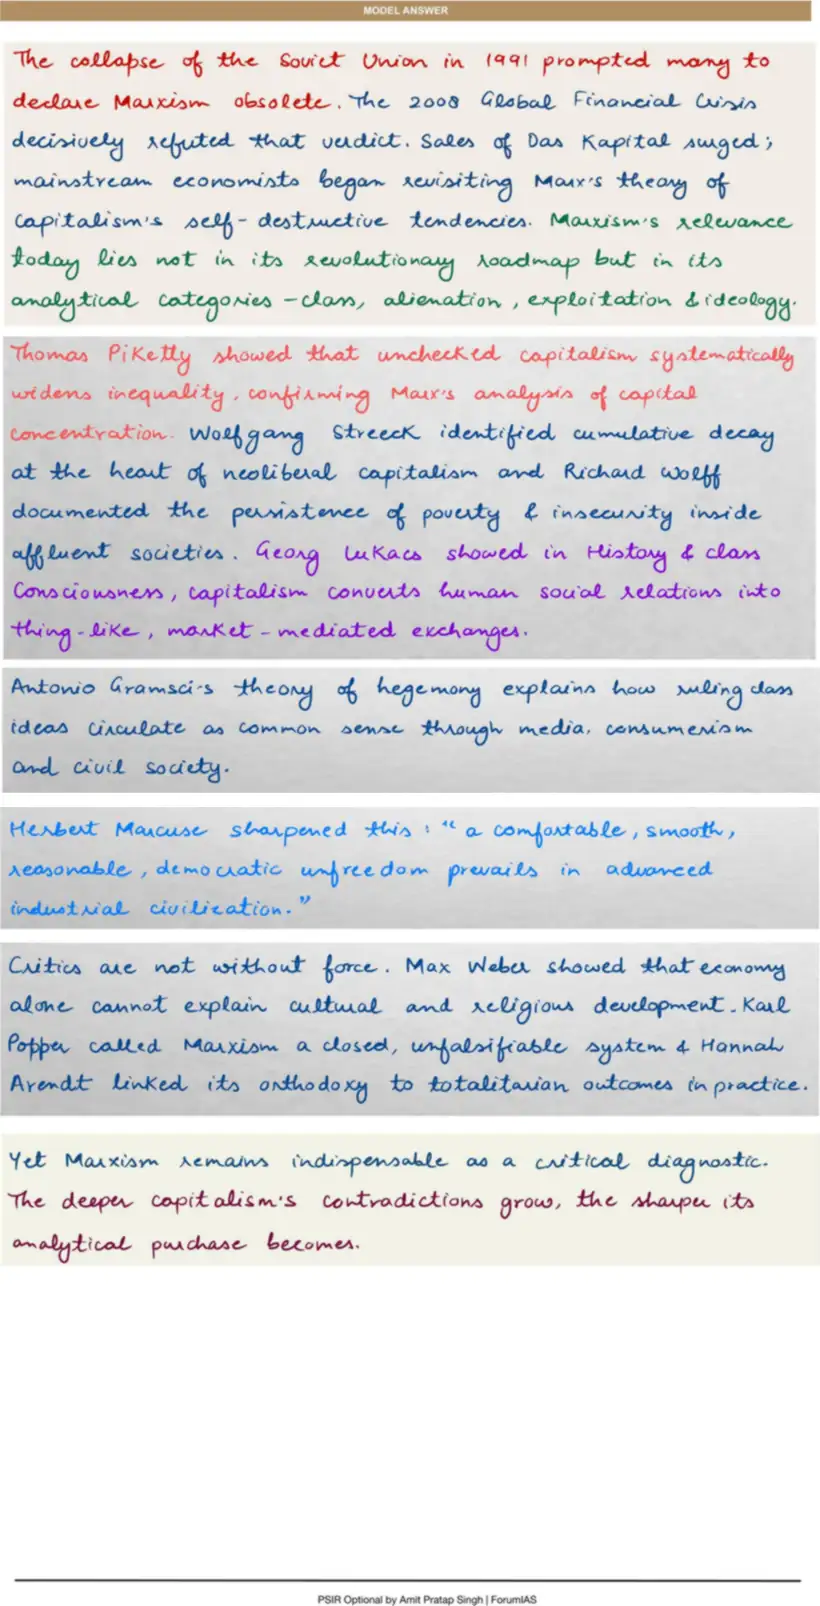 MODEL ANSWER
The collapse of the Soviet Union in 1991 prompted many to
declare Marxism obsolete. The 2008 Global Financial Crisis
decisively refuted that verdict. Sales of Das Kapital surged;
mainstream economists began revisiting Marx's theory of
capitalism's self-destructive tendencies. Marxism's relevance
today lies not in its revolutionary roadmap but in its
analytical categories - class, alienation, exploitation & ideology.
Thomas Piketty showed that unchecked capitalism systematically
widens inequality, confirming Marx's analysis of capital
concentration. Wolfgang Streeck identified cumulative decay
at the heart of neoliberal capitalism and Richard Wolff
documented the persistence of poverty & insecurity inside
affluent societies. Georg Lukacs showed in History & class
Consciousness, capitalism converts human social relations into
thing-like, market-mediated exchanges.
Antonio Gramsci's theory of hegemony explains how ruling class
ideas circulate as common sense through media, consumerism
and civil society.
Herbert Marcuse sharpened this: "a comfortable, smooth,
reasonable, democratic unfreedom prevails in advanced
industrial civilization."
Critics are not without force. Max Weber showed that economy
alone cannot explain cultural and religious development. Karl
Popper called Marxism a closed, unfalsifiable system & Hannah
Arendt linked its orthodoxy to totalitarian outcomes in practice.
Yet Marxism remains indispensable as a critical diagnostic.
The deeper capitalism's contradictions grow, the sharper its
analytical purchase becomes.
PSIR Optional by Amit Pratap Singh | ForumIAS